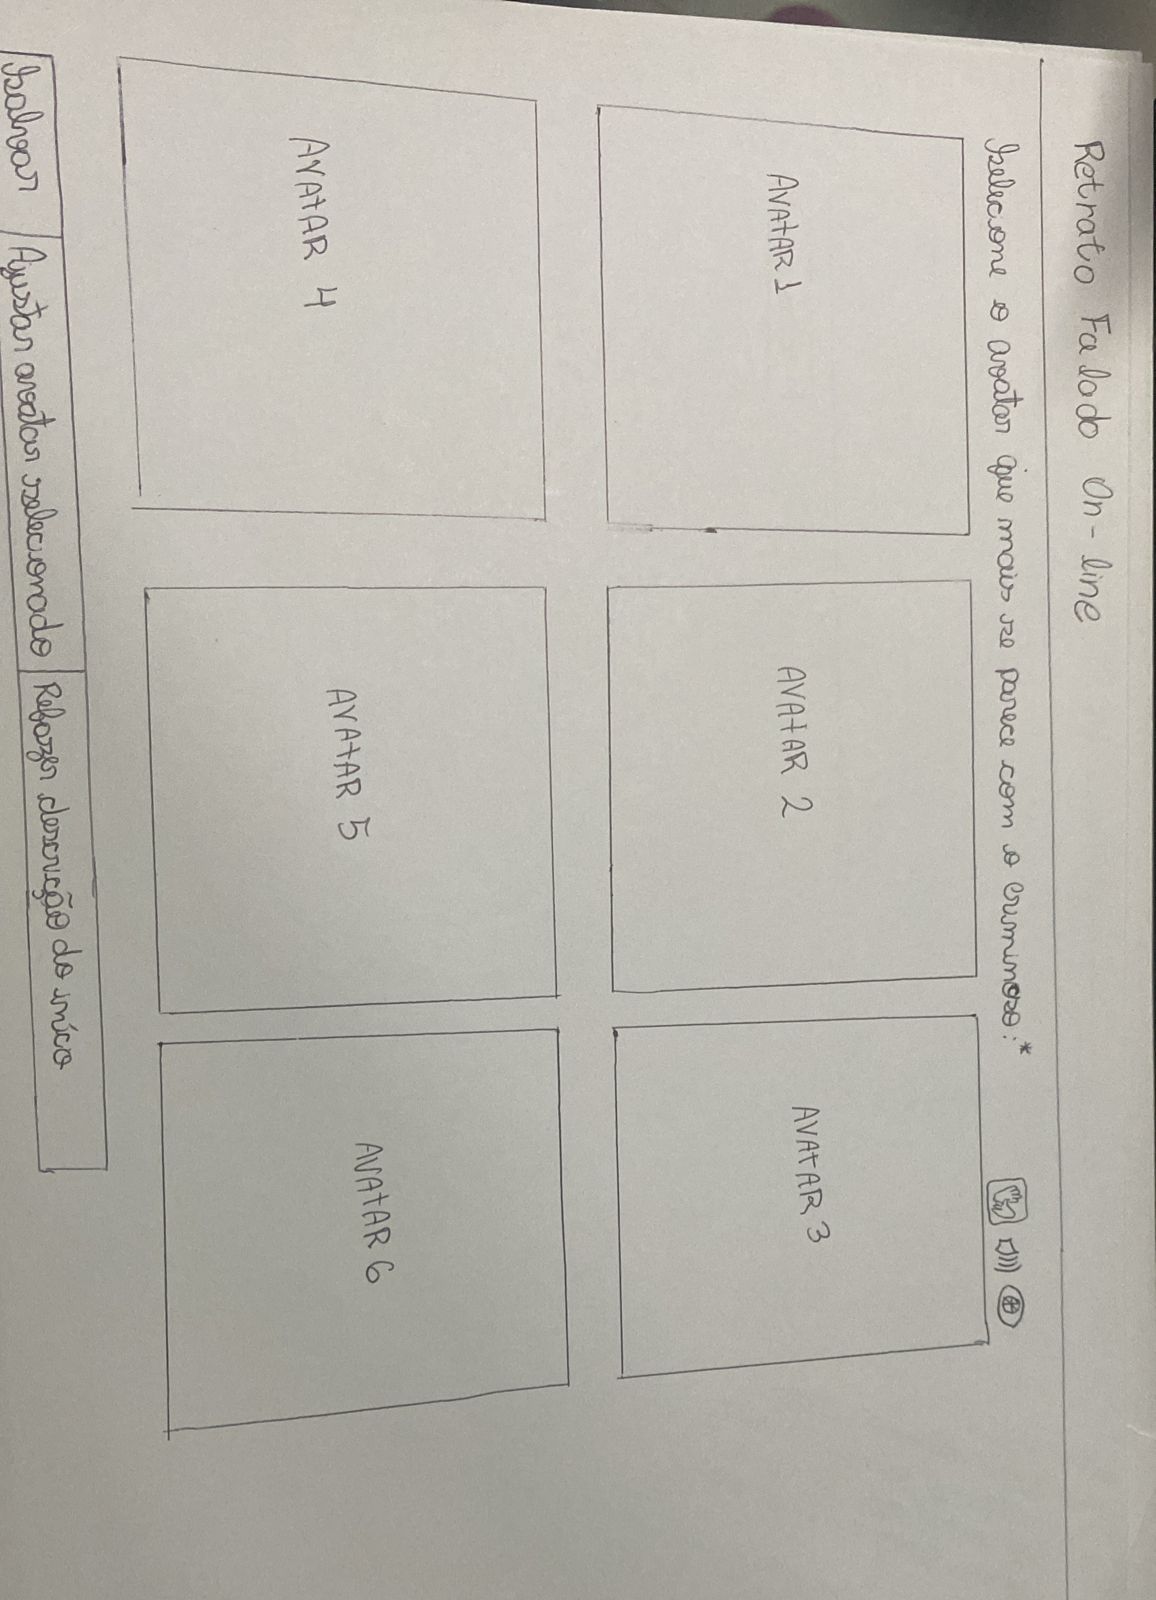 Retrato Falado On-line
Selecione o avatar que mais se parece com o criminoso:*
AVAtAR 1
AVAtAR 2
AVAtAR 3
AVAtAR 4
AVAtAR 5
AVAtAR 6
Salvar
Ajustar avatar selecionado
Refazer descrição do iníco